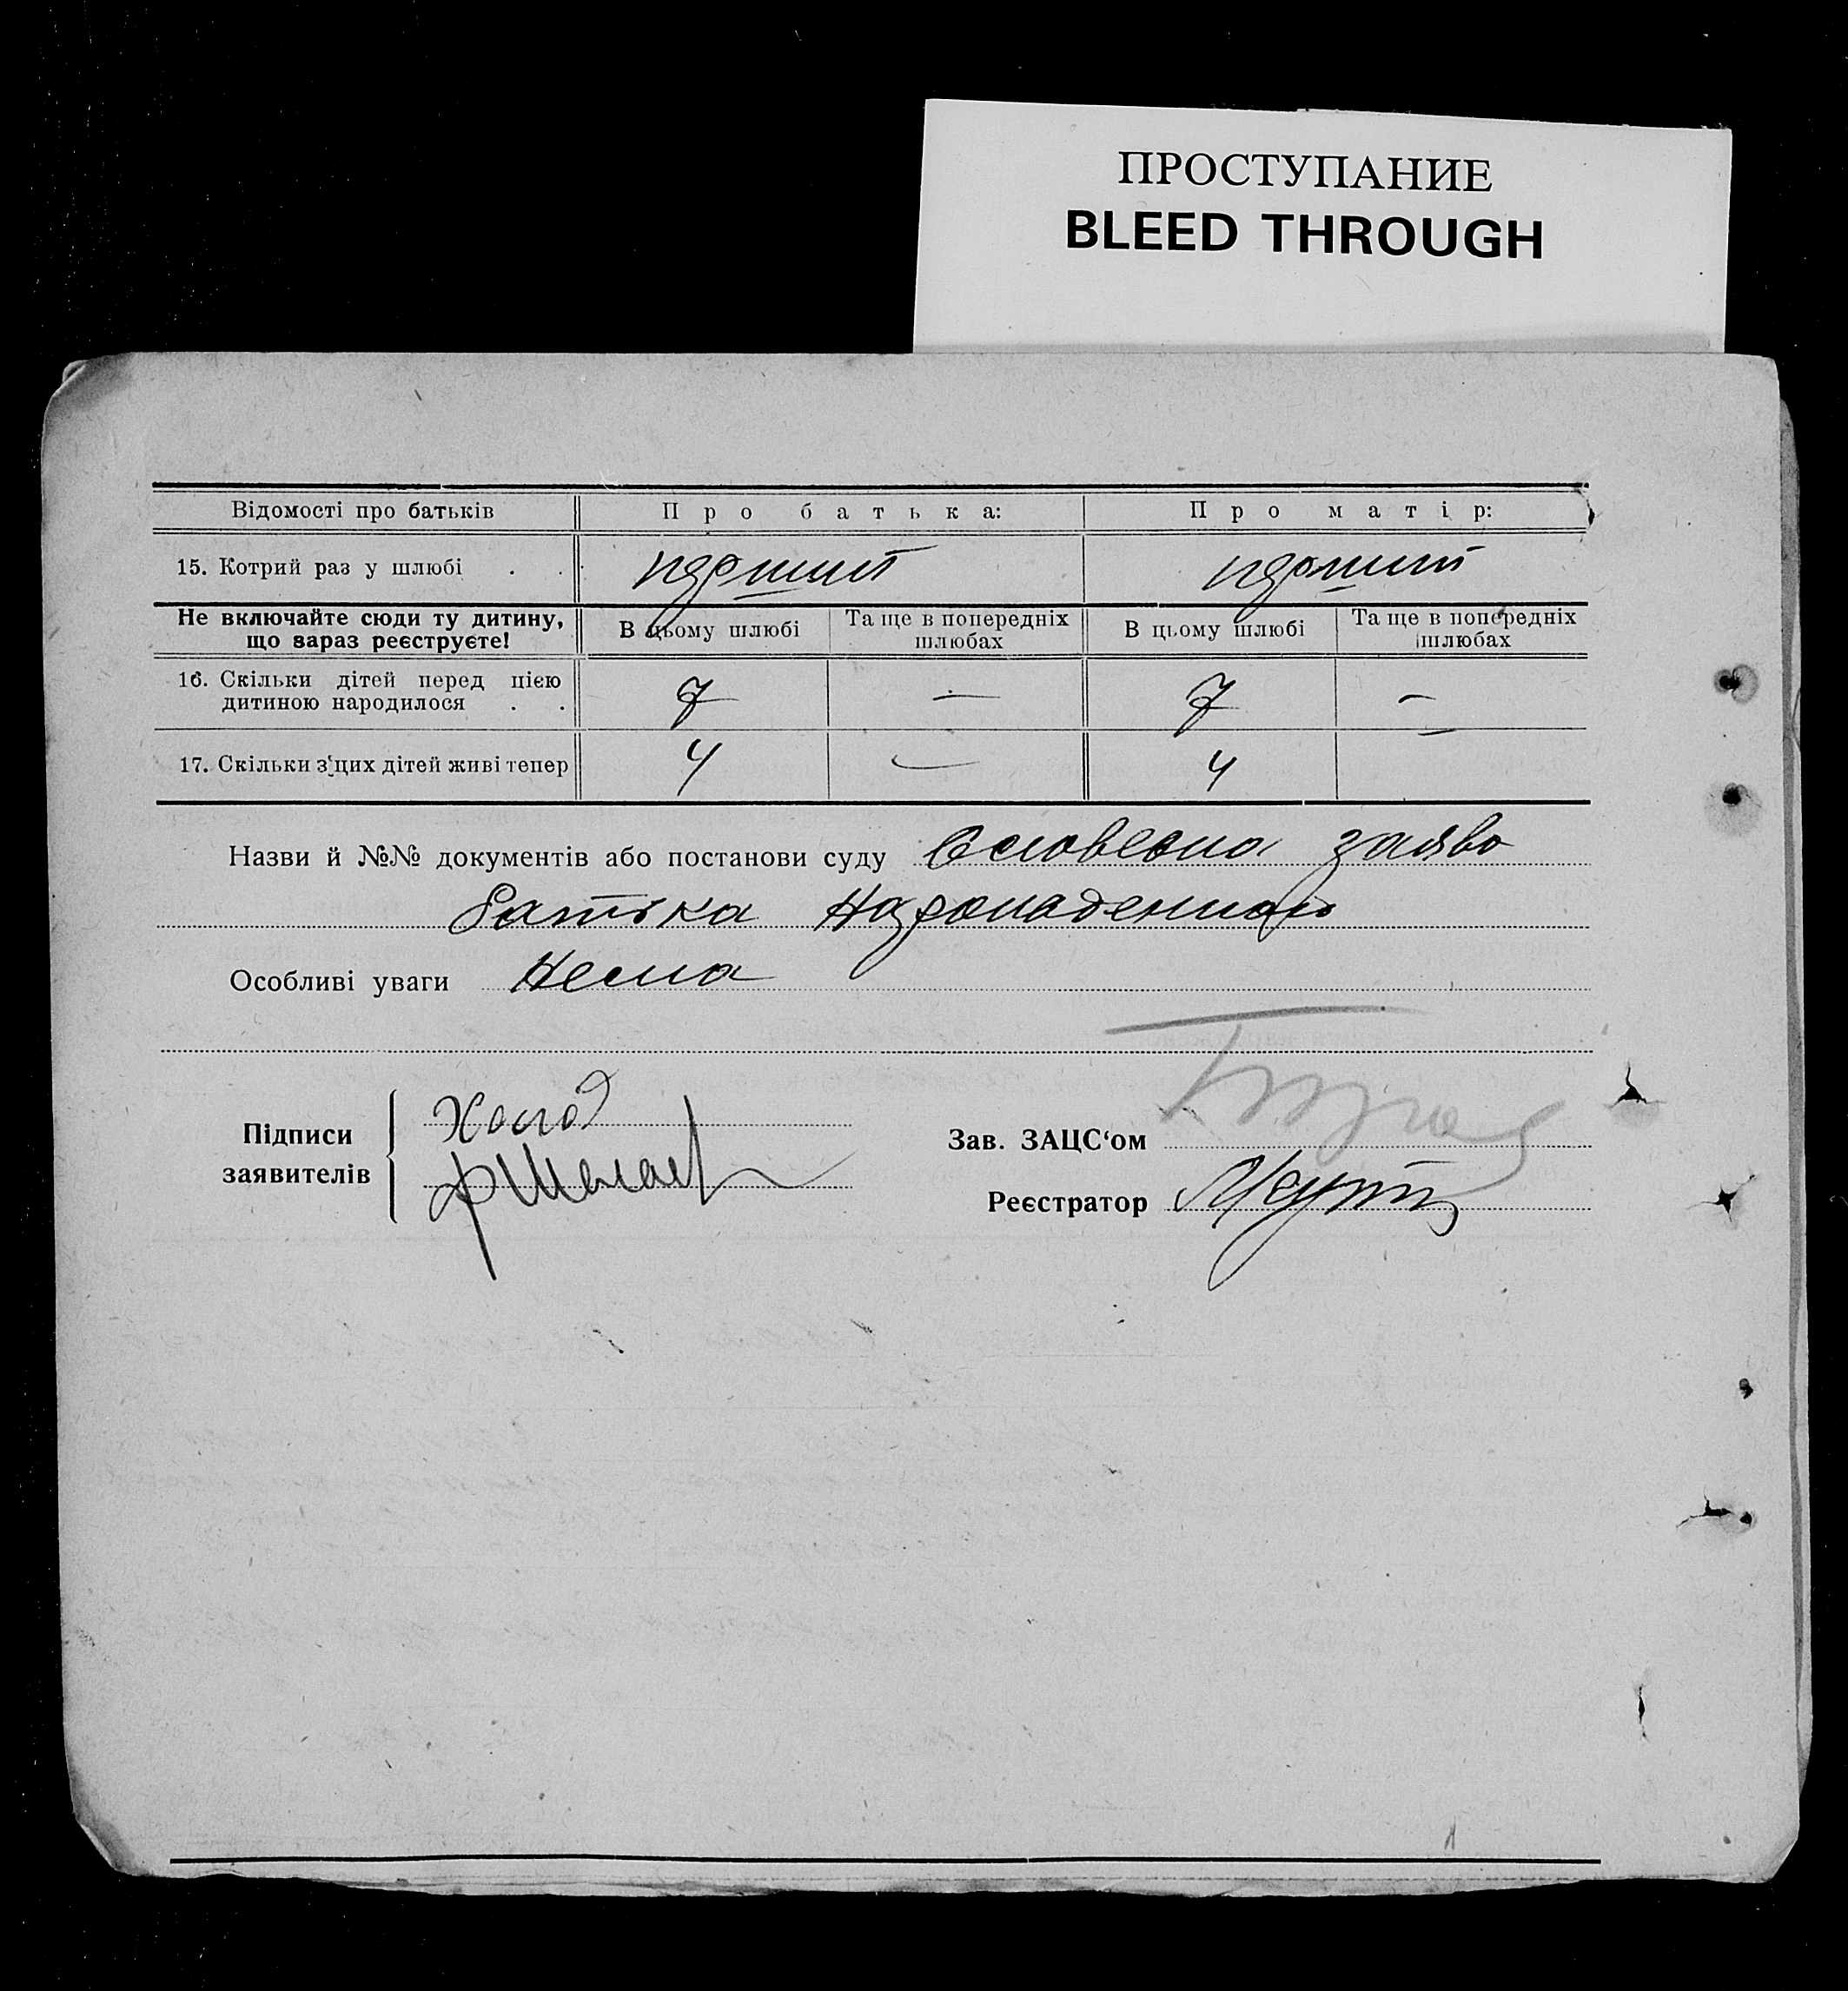 ПРОСТУПАНИЕ
BLEED THROUGH
Відомості про батьків Про батька: Про матір:
15. Котрий раз у шлюбі . . перший перший
Не включайте сюди ту дитину, що вараз реєструєте! В цьому шлюбі Та ще в попередніх шлюбах В цьому шлюбі Та ще в попередніх шлюбах
16. Скільки дітей перед цією дитиною народилося . . 7 — 7 —
17. Скільки з цих дітей живі тепер 4 — 4 —
Назви й №№ документів або постанови суду Словесна заява
батька
Особливі уваги Нема
Підписи заявителів
Холод
Зав. ЗАЦС‘ом
Реєстратор